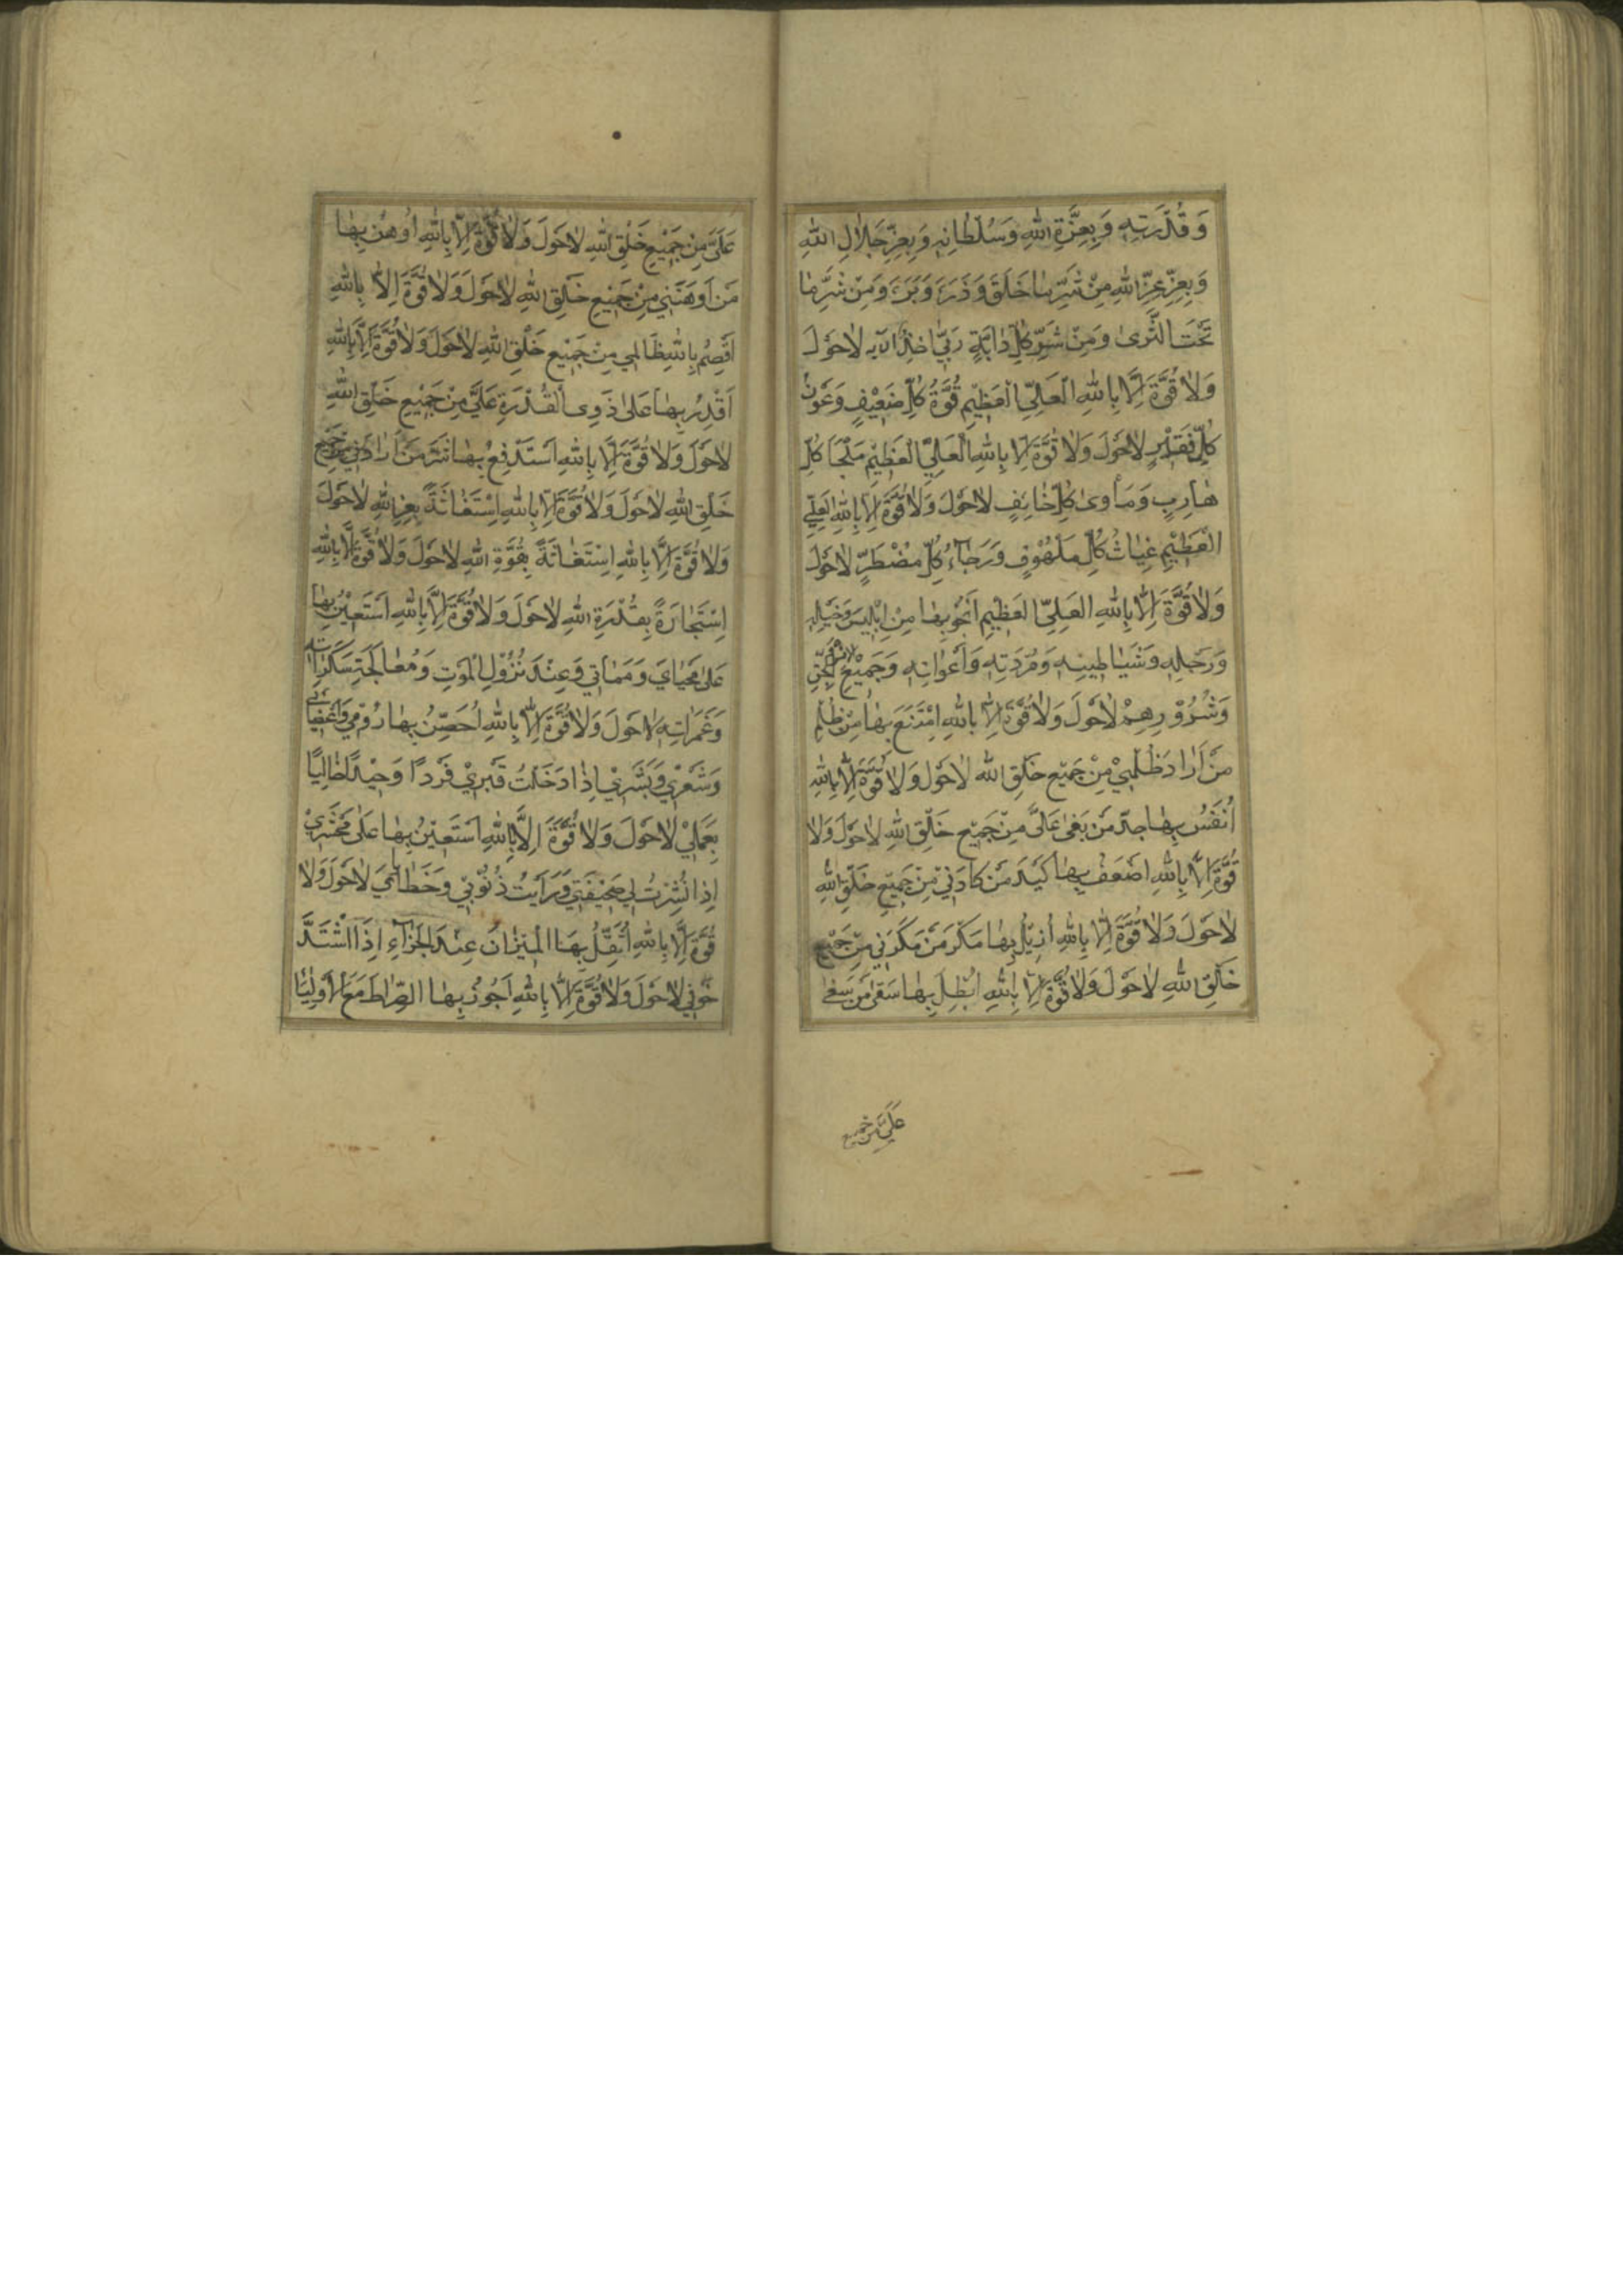 وَقُدْرَتِهِ وَبِعِزَّةِ اللهِ وَسُلْطَانِهِ وَبِعِزِّ جَلَالِ اللهِ
وَبِعِزِّ عِزِّ اللهِ مِنْ شَرِّ مَا خَلَقَ وَذَرَءَ وَبَرَءَ وَمِنْ شَرِّ مَا
تَحْتَ الثَّرَىٰ وَمِنْ شَرِّ كُلِّ دَابَّةٍ رَبِّي اخِذٌ لَاحَوْلَ
وَلَا قُوَّةَ اِلَّا بِاللهِ الْعَلِيِّ الْعَظِيْمِ قُوَّةُ كُلِّ ضَعِيْفٍ وَعَوْنُ
كُلِّ فَقِيْرٍ لَاحَوْلَ وَلَا قُوَّةَ اِلَّا بِاللهِ الْعَلِيِّ الْعَظِيْمِ مَلْجَا كُلِّ
هَارِبٍ وَمَأْوىٰ كُلِّ خَائِفٍ لَاحَوْلَ وَلَا قُوَّةَ اِلَّا بِاللهِ الْعَلِيِّ
الْعَظِيْمِ غِيَاثُ كُلِّ مَلْهُوْفٍ وَرَجَآءُ كُلِّ مُضْطَرٍّ لَاحَوْلَ
وَلَا قُوَّةَ اِلَّا بِاللهِ الْعَلِيِّ الْعَظِيْمِ اَنْجُوْ بِهَا مِنْ اِبْلِيْسَ وَخَيْلِهِ
وَرَجِلِهِ وَشَيَاطِيْنِهِ وَمَرَدَتِهِ وَاَعْوَانِهِ وَجَمِيْعِ الْاِنْسِ وَالْجِنِّ
وَشُرُوْرِهِمْ لَاحَوْلَ وَلَا قُوَّةَ اِلَّا بِاللهِ اِمْتَنَعَ بِهَا مِنْ ظُلْمِ
مَنْ اَرَادَ ظُلْمِيْ مِنْ جَمِيْعِ خَلْقِ اللهِ لَاحَوْلَ وَلَا قُوَّةَ اِلَّا بِاللهِ
بِهَا مَنْ بَغىٰ عَلَيَّ مِنْ جَمِيْعِ خَلْقِ اللهِ لَاحَوْلَ وَلَا
قُوَّةَ اِلَّا بِاللهِ اَضْعَفُ بِهَا كَيْدَ مَنْ كَادَنِيْ مِنْ جَمِيْعِ خَلْقِ اللهِ
لَاحَوْلَ وَلَا قُوَّةَ اِلَّا بِاللهِ اُزِيْلُ بِهَا مَكْرَ مَنْ مَكَرَنِي مِنْ جَمِيْعِ
خَلْقِ اللهِ لَاحَوْلَ وَلَا قُوَّةَ اِلَّا بِاللهِ اُبْطِلُ بِهَا سَعْىَ مَنْ سَعىٰ
عَلَيَّ مِنْ جَمِيْعِ
عَلَيَّ مِنْ جَمِيْعِ خَلْقِ اللهِ لَاحَوْلَ وَلَا قُوَّةَ اِلَّا بِاللهِ اُوْهِنُ بِهَا
مَنْ اَوْهَنَنِي مِنْ جَمِيْعِ خَلْقِ اللهِ لَاحَوْلَ وَلَا قُوَّةَ اِلَّا بِاللهِ
اَقْصِمُ بِاللهِ ظَالِمِي مِنْ جَمِيْعِ خَلْقِ اللهِ لَاحَوْلَ وَلَا قُوَّةَ اِلَّا بِاللهِ
اَقْدِرُ بِهَا عَلىٰ ذَوِى الْقُدْرَةِ عَلَيَّ مِنْ جَمِيْعِ خَلْقِ اللهِ
لَاحَوْلَ وَلَا قُوَّةَ اِلَّا بِاللهِ اَسْتَدْفِعُ بِهَا شَرَّ مَنْ اَرَادَنِي مِنْ جَمِيْعِ
خَلْقِ اللهِ لَاحَوْلَ وَلَا قُوَّةَ اِلَّا بِاللهِ اِسْتَغَاثَةً بِعِزِّ اللهِ لَاحَوْلَ
وَلَا قُوَّةَ اِلَّا بِاللهِ اِسْتِغَاثَةً بِقُوَّةِ اللهِ لَاحَوْلَ وَلَا قُوَّةَ اِلَّا بِاللهِ
اِسْتِجَارَةً بِقُدْرَةِ اللهِ لَاحَوْلَ وَلَا قُوَّةَ اِلَّا بِاللهِ اَسْتَعِيْنُ بِهَا
عَلىٰ مَحْيَايَ وَمَمَاتِي وَعِنْدَ نُزُوْلِ الْمَوْتِ وَمُعَالَجَتِ سَكَرَاتِهِ
وَغَمَرَاتِهِ لَاحَوْلَ وَلَا قُوَّةَ اِلَّا بِاللهِ اُحَصِّنُ بِهَا رُوْمِي وَاَعْضَائِي
وَشَعْرِي وَبَشَرِيْ اِذَا دَخَلْتُ قَبْرِيْ فَرْدًا وَحِيْدًا خَالِيًا
بِعَمَلِيْ لَاحَوْلَ وَلَا قُوَّةَ اِلَّا بِاللهِ اَسْتَعِيْنُ بِهَا عَلىٰ مَحْشَرِيْ
اِذَا نُشِرَتْ لِي صَحِيْفَتِي وَرَاَيْتُ ذُنُوْبِيْ وَخَطَايَايَ لَاحَوْلَ وَلَا
قُوَّةَ اِلَّا بِاللهِ اُثَقِّلُ بِهَا الْمِيْزَانَ عِنْدَ الْجَزَآءِ اِذَا اشْتَدَّ
خَوْفِي لَاحَوْلَ وَلَا قُوَّةَ اِلَّا بِاللهِ اَجُوْزُ بِهَا الصِّرَاطَ مَعَ الْاَوْلِيَا